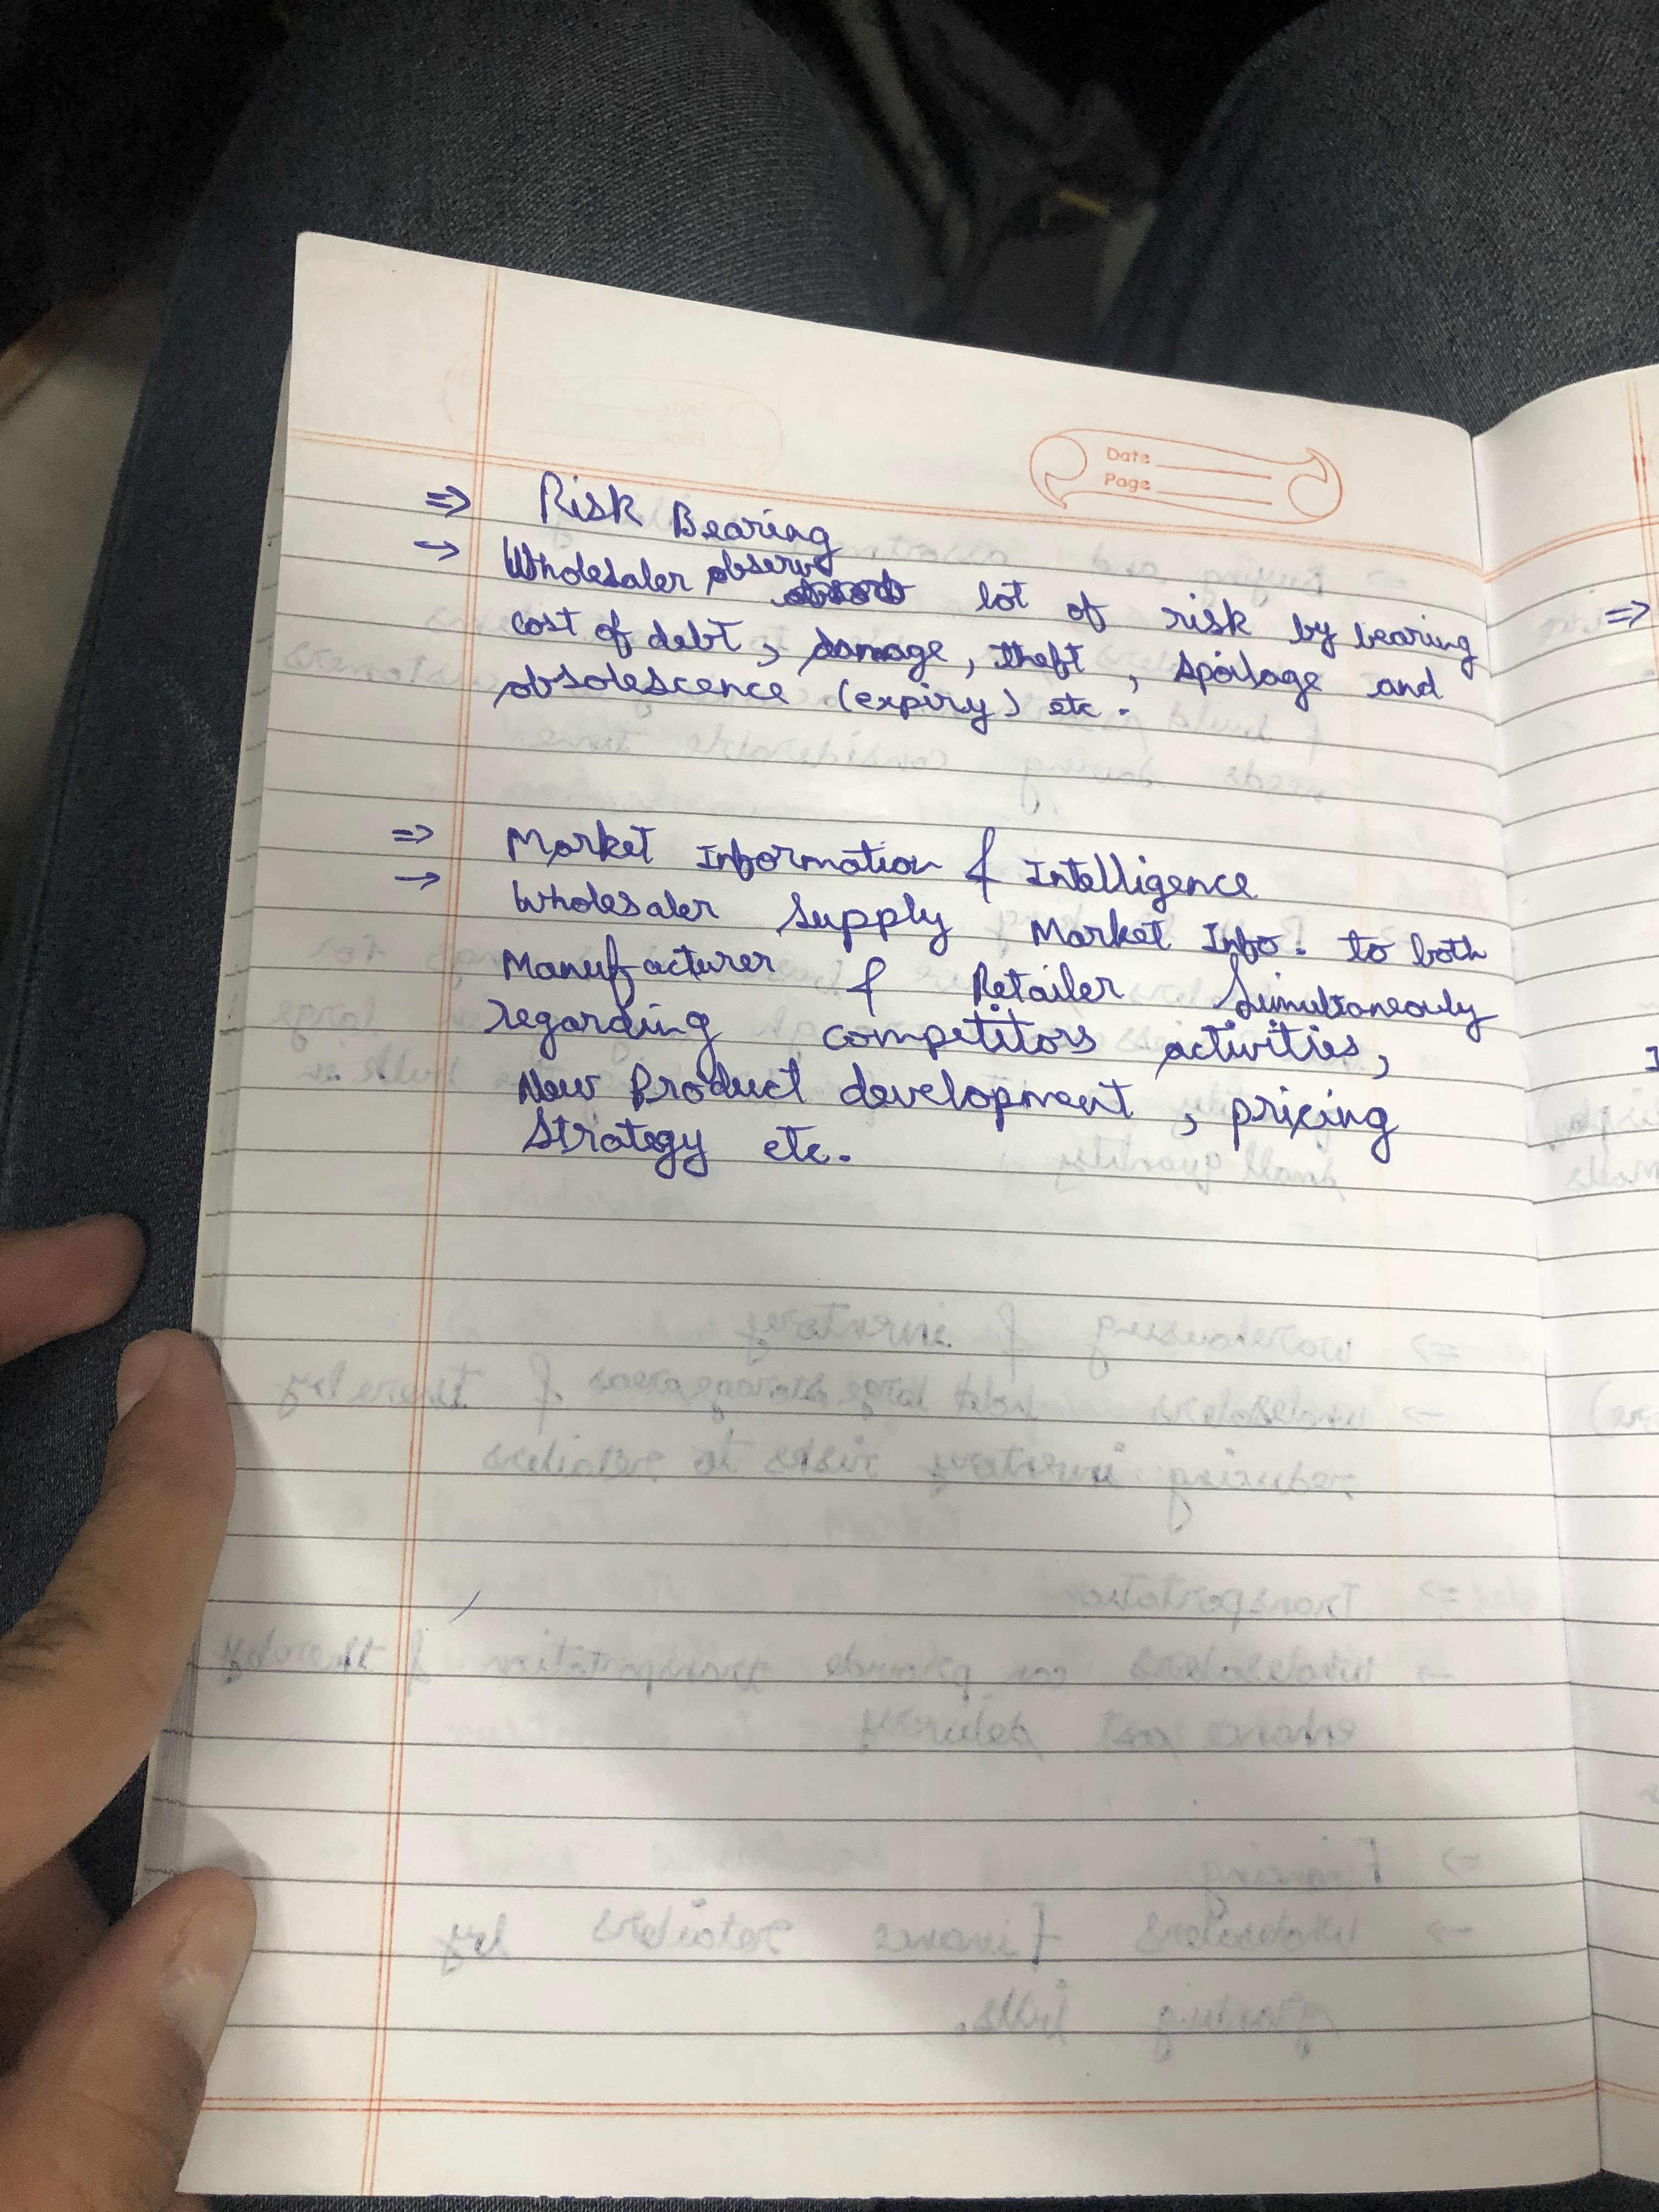 Date
Page
⇒ Risk Bearing
→ Wholesaler observ lot of risk by bearing
cost of debt, damage, theft, spoilage and
obsolescence (expiry) etc.
⇒ Market Information & Intelligence
→ Wholesaler supply Market Info. to both
Manufacturer & Retailer Simultaneously
regarding competitors activities,
New Product development, pricing
Strategy etc.
⇒